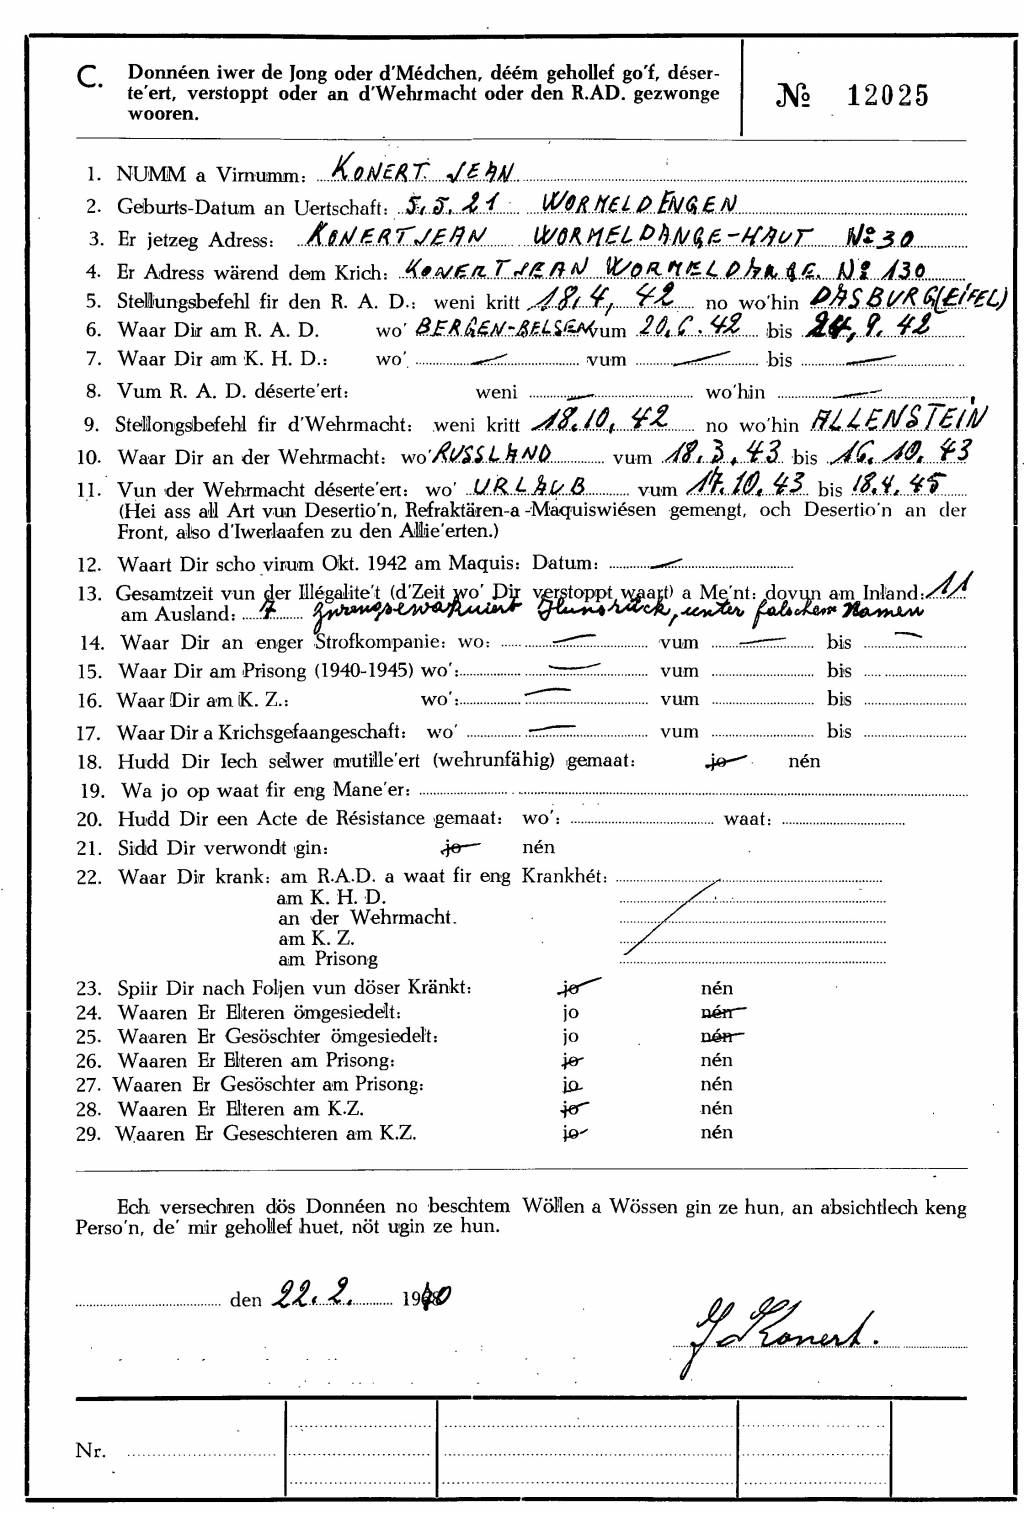 C. Donnéen iwer de Jong oder d'Médchen, déém gehollef go'f, déser-
te'ert, verstoppt oder an d'Wehrmacht oder den R.AD. gezwonge
wooren.
№ 12025
1. NUMM a Virnumm: KONERT JEAN
2. Geburts-Datum an Uertschaft: 5.5.21 WORMELDENGEN
3. Er jetzeg Adress: KONERT JEAN WORMELDANGE-HAUT No 30
4. Er Adress wärend dem Krich: KONERT JEAN WORMELDANGE. No 130
5. Stellungsbefehl fir den R. A. D.: weni kritt 18.4, 42 no wo'hin DASBURG (EIFEL)
6. Waar Dir am R. A. D. wo' BERGEN-BELSEN vum 20.6.42 bis 24,9.42
7. Waar Dir am K. H. D.: wo' — vum — bis —
8. Vum R. A. D. déserte'ert: weni — wo'hin —
9. Stellongsbefehl fir d'Wehrmacht: weni kritt 18.10, 42 no wo'hin ALLENSTEIN
10. Waar Dir an der Wehrmacht: wo' RUSSLAND vum 18.3.43 bis 16.10.43
11. Vun der Wehrmacht déserte'ert: wo' URLAUB vum 17.10.43 bis 18.4.45
(Hei ass all Art vun Desertio'n, Refraktären-a-Maquiswiésen gemengt, och Desertio'n an der
Front, also d'Iwerlaafen zu den Allie'erten.)
12. Waart Dir scho virum Okt. 1942 am Maquis: Datum: —
13. Gesamtzeit vun der Illégalite't (d'Zeit wo' Dir verstoppt waart) a Me'nt: dovun am Inland: 11
am Ausland: 7 Zwengsewakuiert Hunsrück, unter falschem Namen
14. Waar Dir an enger Strofkompanie: wo: — vum — bis —
15. Waar Dir am Prisong (1940-1945) wo': — vum bis
16. Waar Dir am K. Z.: wo': — vum bis
17. Waar Dir a Krichsgefaangeschaft: wo' — vum bis
18. Hudd Dir Iech selwer mutille'ert (wehrunfähig) gemaat: jo nén
19. Wa jo op waat fir eng Mane'er:
20. Hudd Dir een Acte de Résistance gemaat: wo': waat:
21. Sidd Dir verwondt gin: jo nén
22. Waar Dir krank: am R.A.D. a waat fir eng Krankhét:
am K. H. D.
an der Wehrmacht.
am K. Z.
am Prisong
23. Spiir Dir nach Foljen vun döser Kränkt: jo nén
24. Waaren Er Elteren ömgesiedelt: jo nén
25. Waaren Er Gesöschter ömgesiedelt: jo nén
26. Waaren Er Elteren am Prisong: jo nén
27. Waaren Er Gesöschter am Prisong: jo nén
28. Waaren Er Elteren am K.Z. jo nén
29. Waaren Er Geseschteren am K.Z. jo nén
Ech versechren dös Donnéen no beschtem Wöllen a Wössen gin ze hun, an absichtlech keng
Perso'n, de' mir gehollef huet, nöt ugin ze hun.
den 22.2. 1940
J Konert.
Nr.